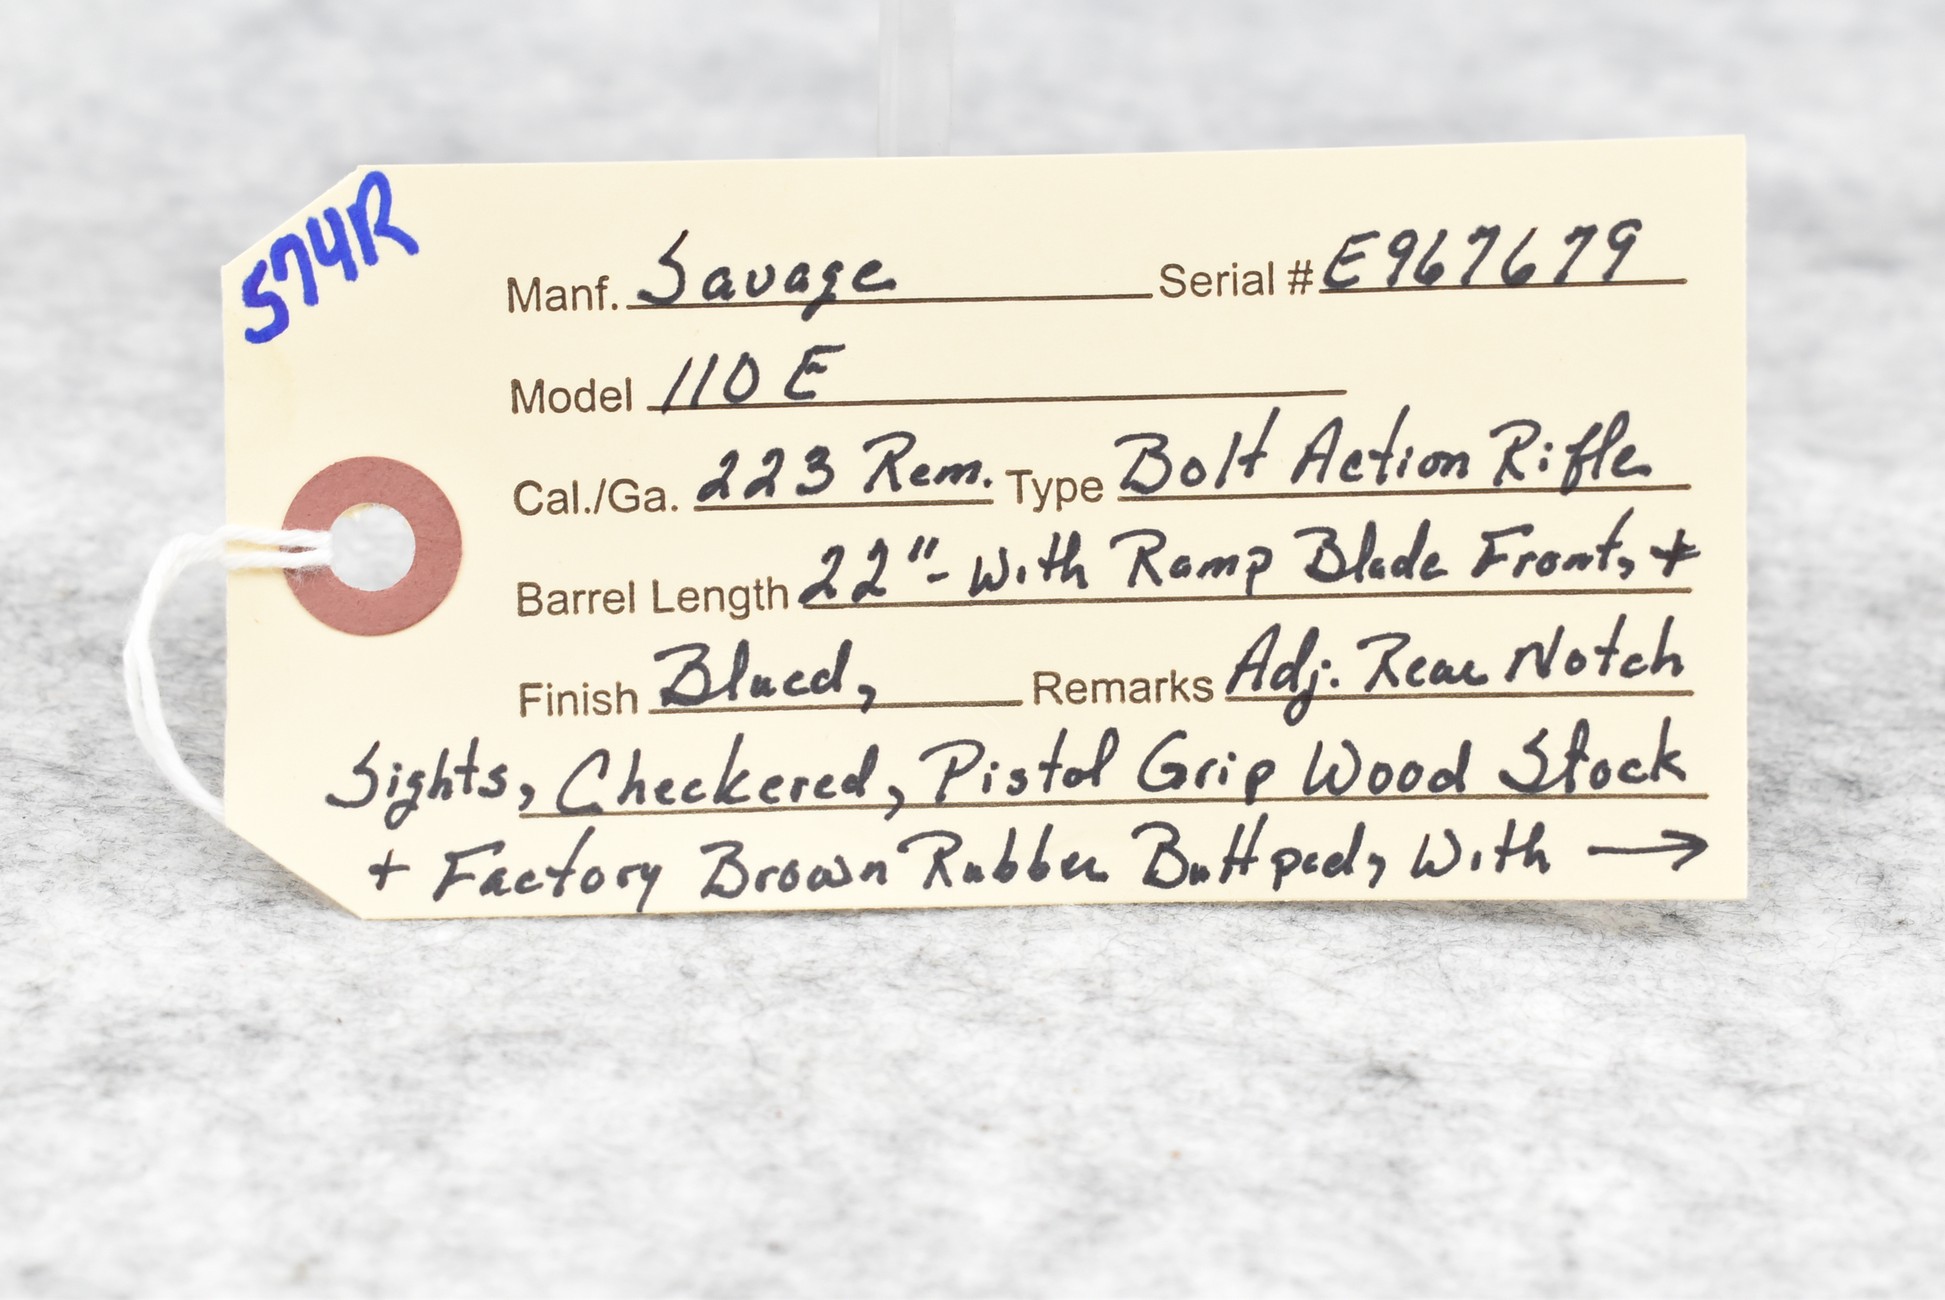 574R
Manf. Savage Serial # E967679
Model 110 E
Cal./Ga. 223 Rem. Type Bolt Action Rifle
Barrel Length 22"- With Ramp Blade Front, +
Finish Blued, Remarks Adj. Rear Notch
Sights, Checkered, Pistol Grip Wood Stock
+ Factory Brown Rubber Buttpad, With →